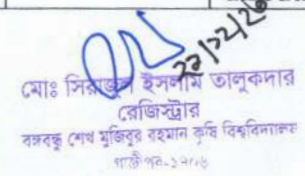 ২২/১২/২০
মোঃ সিরাজুল ইসলাম তালুকদার
রেজিস্ট্রার
বঙ্গবন্ধু শেখ মুজিবুর রহমান কৃষি বিশ্ববিদ্যালয়
গাজীপুর-১৭০৬